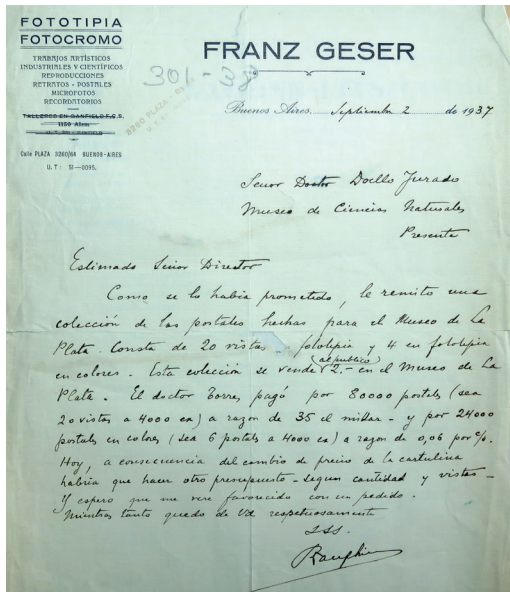 FOTOTIPIA
FOTOCROMO
TRABAJOS ARTÍSTICOS
INDUSTRIALES Y CIENTÍFICOS
REPRODUCCIONES
RETRATOS - POSTALES
MICROFOTOS
RECORDATORIOS
TALLERES EN BANFIELD F.C.S.
Calle PLAZA 3260/64 BUENOS-AIRES
U. T: 51-0095.
301-38
3260 PLAZA
FRANZ GESER
Buenos Aires, Septiembre 2 de 1937
Senor Doctor Doello Jurado
Museo de Ciencias Naturales
Presente
Estimado Señor Director
Como se lo habia prometido, le remito una
colección de las postales hechas para el Museo de La
Plata. Consta de 20 vistas fototipia y 4 en fototipia
en colores. Esta colección se vende (al publico) 2.- en el Museo de La
Plata. El doctor Torres pagó por 80000 postales (sea
20 vistas a 4000 ex) a razon de 35 el millar - y por 24000
postales en colores (sea 6 postales a 4000 ex) a razon de 0,06 por c/u.
Hoy, a consecuencia del cambio de precio de la cartulina
habria que hacer otro presupuesto - segun cantidad y vistas -
Y espero que me vere favorecido con un pedido.
Mientras tanto quedo de Vd respetuosamente
SSS.